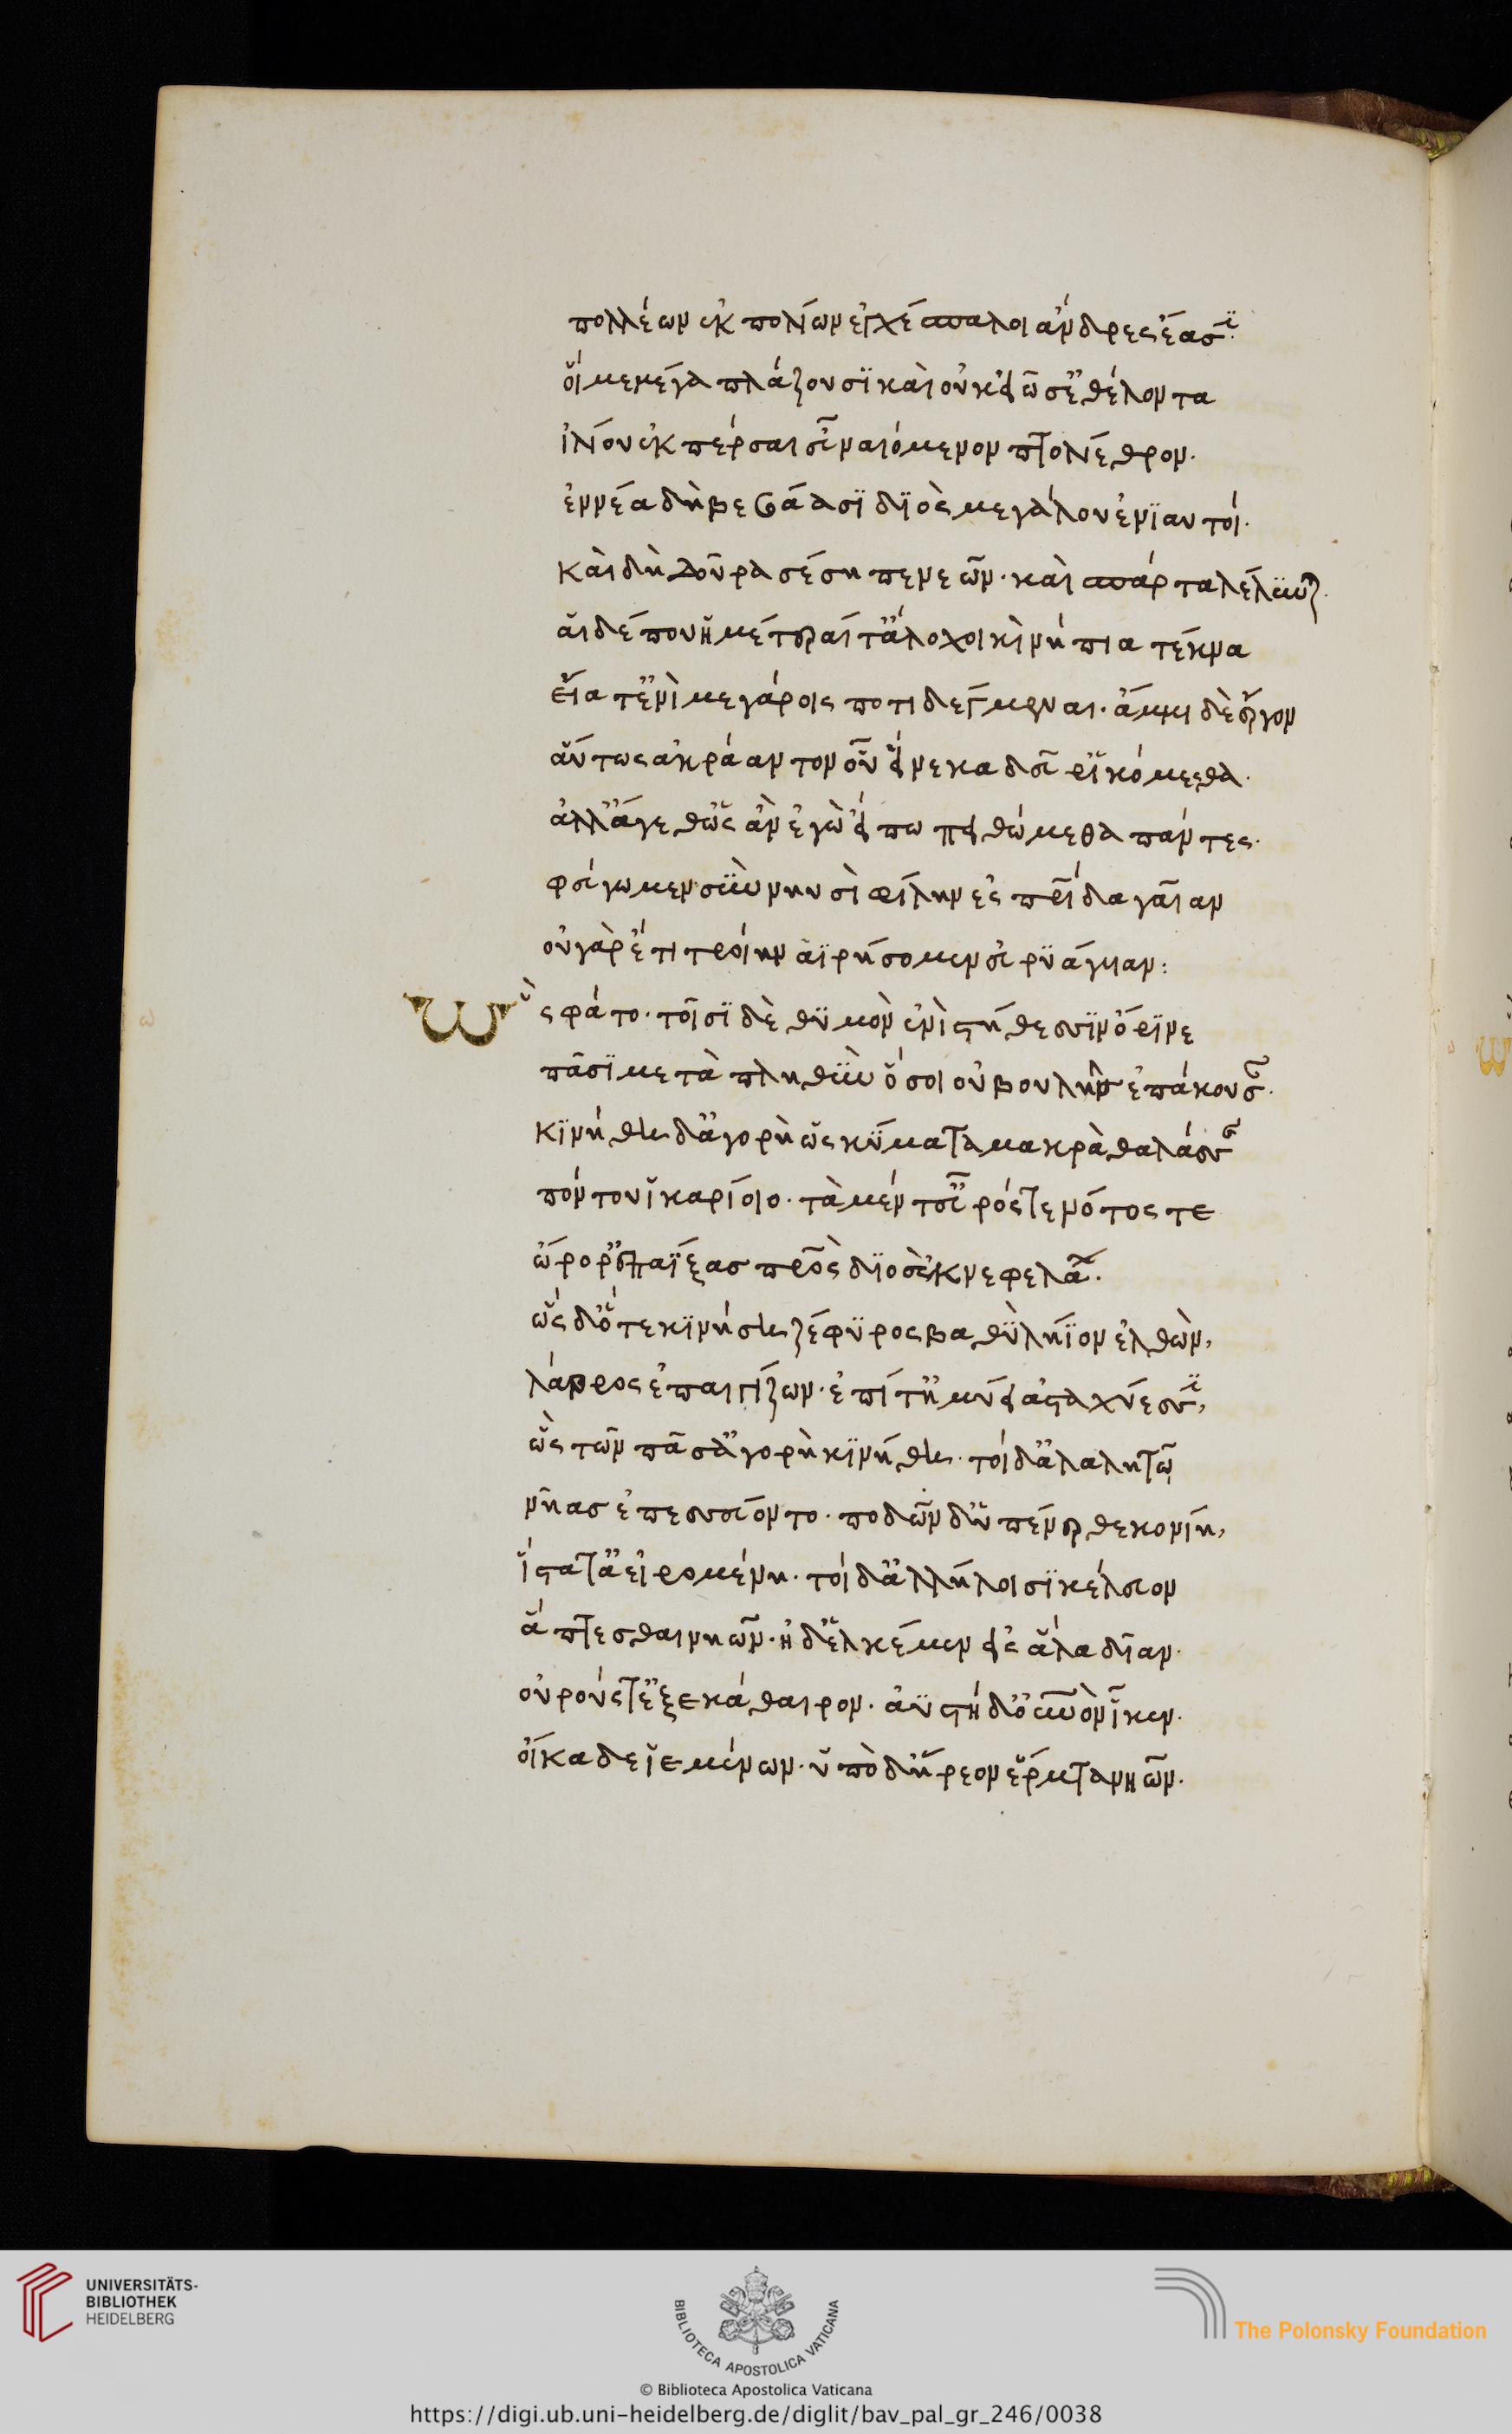 πολλέων ἐκ πολίων ἐγχέσπαλοι ἄνδρες ἔασϊ·
οἵ με μέγα πλάζουσϊ καὶ οὐκ εἰῶσ' ἐθέλοντα
ἰλίου ἐκπέρσαι εὖ ναιόμενον πτολίεθρον·
ἐννέα δὴ βεβάασϊ δϊὸς μεγάλου ἐνϊαυτοί·
καὶ δὴ δοῦρα σέσηπε νεῶν· καὶ σπάρτα λέλϋνται·
αἵ δέ που ἡμέτεραί τ' ἄλοχοι καὶ νήπια τέκνα
εἵατ' ἐνὶ μεγάροις ποτιδέγμεναι· ἄμμι δὲ ἔργον
αὕτως ἀκράαντον οὗ εἵνεκα δεῦρ' ἱκόμεσθα·
ἀλλ' ἄγεθ' ὡς ἂν ἐγὼ εἴπω πειθώμεθα πάντες·
φεύγωμεν σὺν νηυσὶ φίλην ἐς πατρίδα γαῖαν
οὐ γὰρ ἔτι τροίην αἱρήσομεν εὐρϋάγυιαν:
Ὣς φάτο· τοῖσϊ δὲ θϋμὸν ἐνὶ στήθεσσϊν ὄρϊνε
πᾶσϊ μετὰ πληθὺν ὅσοι οὐ βουλῆς ἐπάκουσαν·
κϊνήθη δ' ἀγορὴ ὡς κύματα μακρὰ θαλάσσης
πόντου ἰκαρίοιο· τὰ μέν τ' εὖρός τε νότος τε
ὤρορ' ἐπαΐξας πατρὸς δϊὸς ἐκ νεφελάων·
ὡς δ' ὅτε κϊνήσει ζέφϋρος βαθϋλήϊον ἐλθὼν,
λάβρος ἐπαιγίζων· ἐπί τ' ἠμύει ἀσταχύεσσϊ,
ὣς τῶν πᾶσ' ἀγορὴ κϊνήθη· τοὶ δ' ἀλαλητῷ
νῆας ἐπεσσεύοντο· ποδῶν δ' ὑπένερθε κονίη,
ἵστατ' ἀειρομένη· τοὶ δ' ἀλλήλοισϊ κέλευον
ἅπτεσθαι νηῶν· ἠδ' ἑλκέμεν εἰς ἅλα δῖαν·
οὐρούς τ' ἐξεκάθαιρον· ἀϋτὴ δ' οὐρανὸν ἷκεν·
οἴκαδε ἱεμένων· ὑπὸ δ' ᾕρεον ἕρματα νηῶν·
UNIVERSITÄTS-
BIBLIOTHEK
HEIDELBERG
BIBLIOTECA APOSTOLICA VATICANA
The Polonsky Foundation
© Biblioteca Apostolica Vaticana
https://digi.ub.uni-heidelberg.de/diglit/bav_pal_gr_246/0038